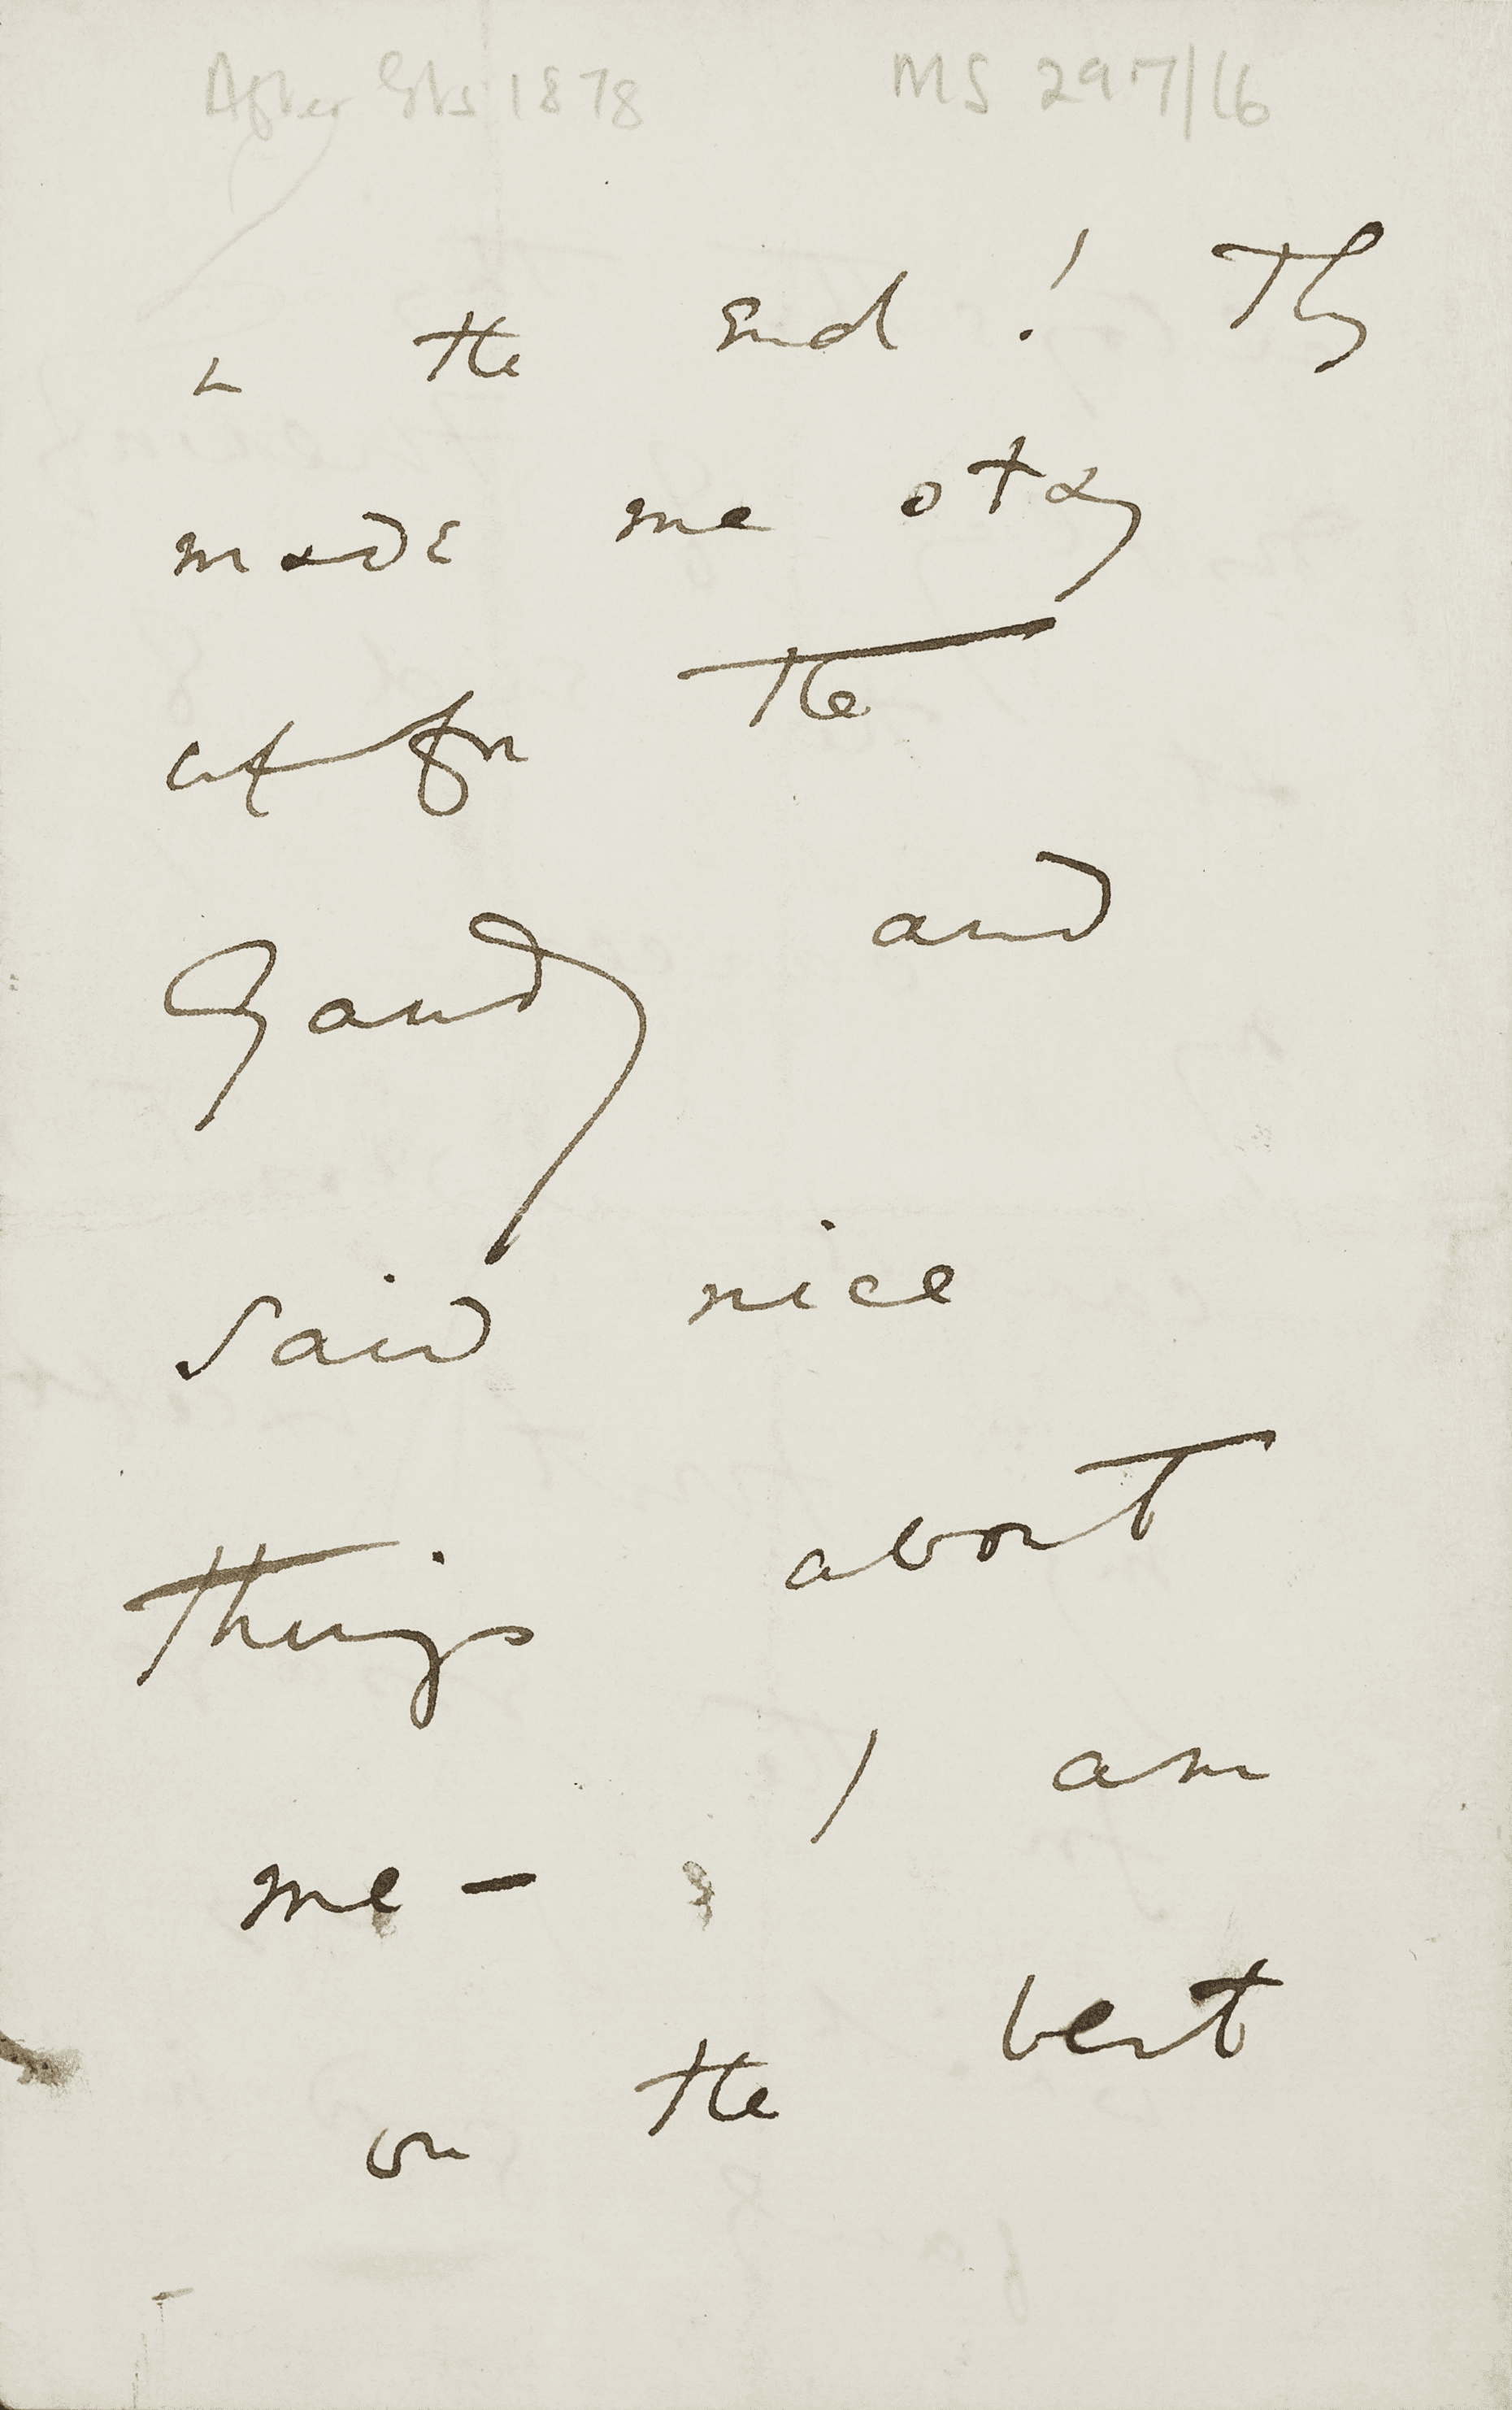 After 1878 MS 297/16
in the end! They
made me stay
up for the
Gaudy and
said nice
things about
me — I am
on the best